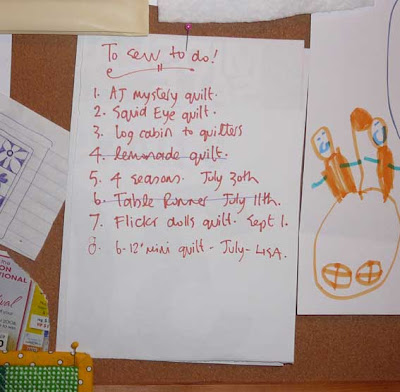 To sew to do!
1. AJ mystery quilt.
2. Squid Eye quilt.
3. Log cabin to quilters
4. lemonade quilt.
5. 4 seasons. July 30th
6. Table Runner July 11th.
7. Flickr dolls quilt. Sept 1.
8. 6-12" mini quilt - July - LISA.